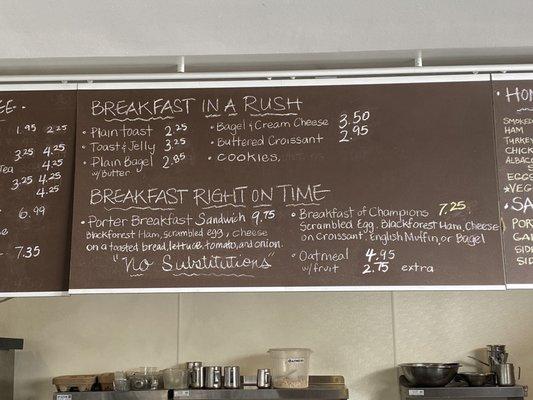 EE.
1.95 2.25
3.25 4.25
Tea 4.25
3.25 4.25
4.25
6.99
7.35
BREAKFAST IN A RUSH
• Plain Toast 2.25
• Toast & Jelly 3.25
• Plain Bagel 2.85
w/Butter
• Bagel & Cream Cheese 3.50
• Buttered Croissant 2.95
• COOKIES,
BREAKFAST RIGHT ON TIME
• Porter Breakfast Sandwich 9.75
Blackforest Ham, scrambled egg, cheese
on a toasted bread, lettuce, tomato, and onion.
"No SUBSTITUTIONS"
• Breakfast of Champions 7.25
Scrambled Egg, Blackforest Ham, Cheese
on Croissant, English Muffin, or Bagel
• Oatmeal 4.95
w/fruit 2.75 extra
HO
SMOKED
HAM
TURKEY
CHICK
ALBAC
EGG
VEG
SA
POR
GA
SIDE
SID